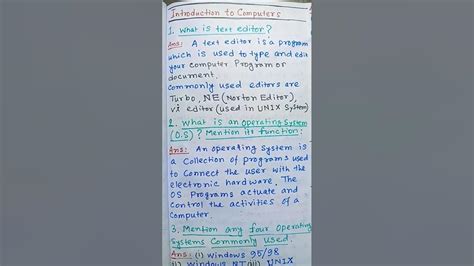 Introduction to Computers
1. What is text editor?
Ans: A text editor is a program
which is used to type and edit
your computer Program or
document.
Commonly used editors are
Turbo, NE (Norton Editor),
vi editor (used in UNIX System)
2. What is an operating System
(O.S)? Mention its function:
Ans: An operating System is
a Collection of programs used
to Connect the user with the
electronic hardware. The
OS Programs actuate and
Control the activities of a
Computer.
3. Mention any four Operating
Systems Commonly used.
Ans: (i) Windows 95/98
(ii) Windows NT (iii) UNIX